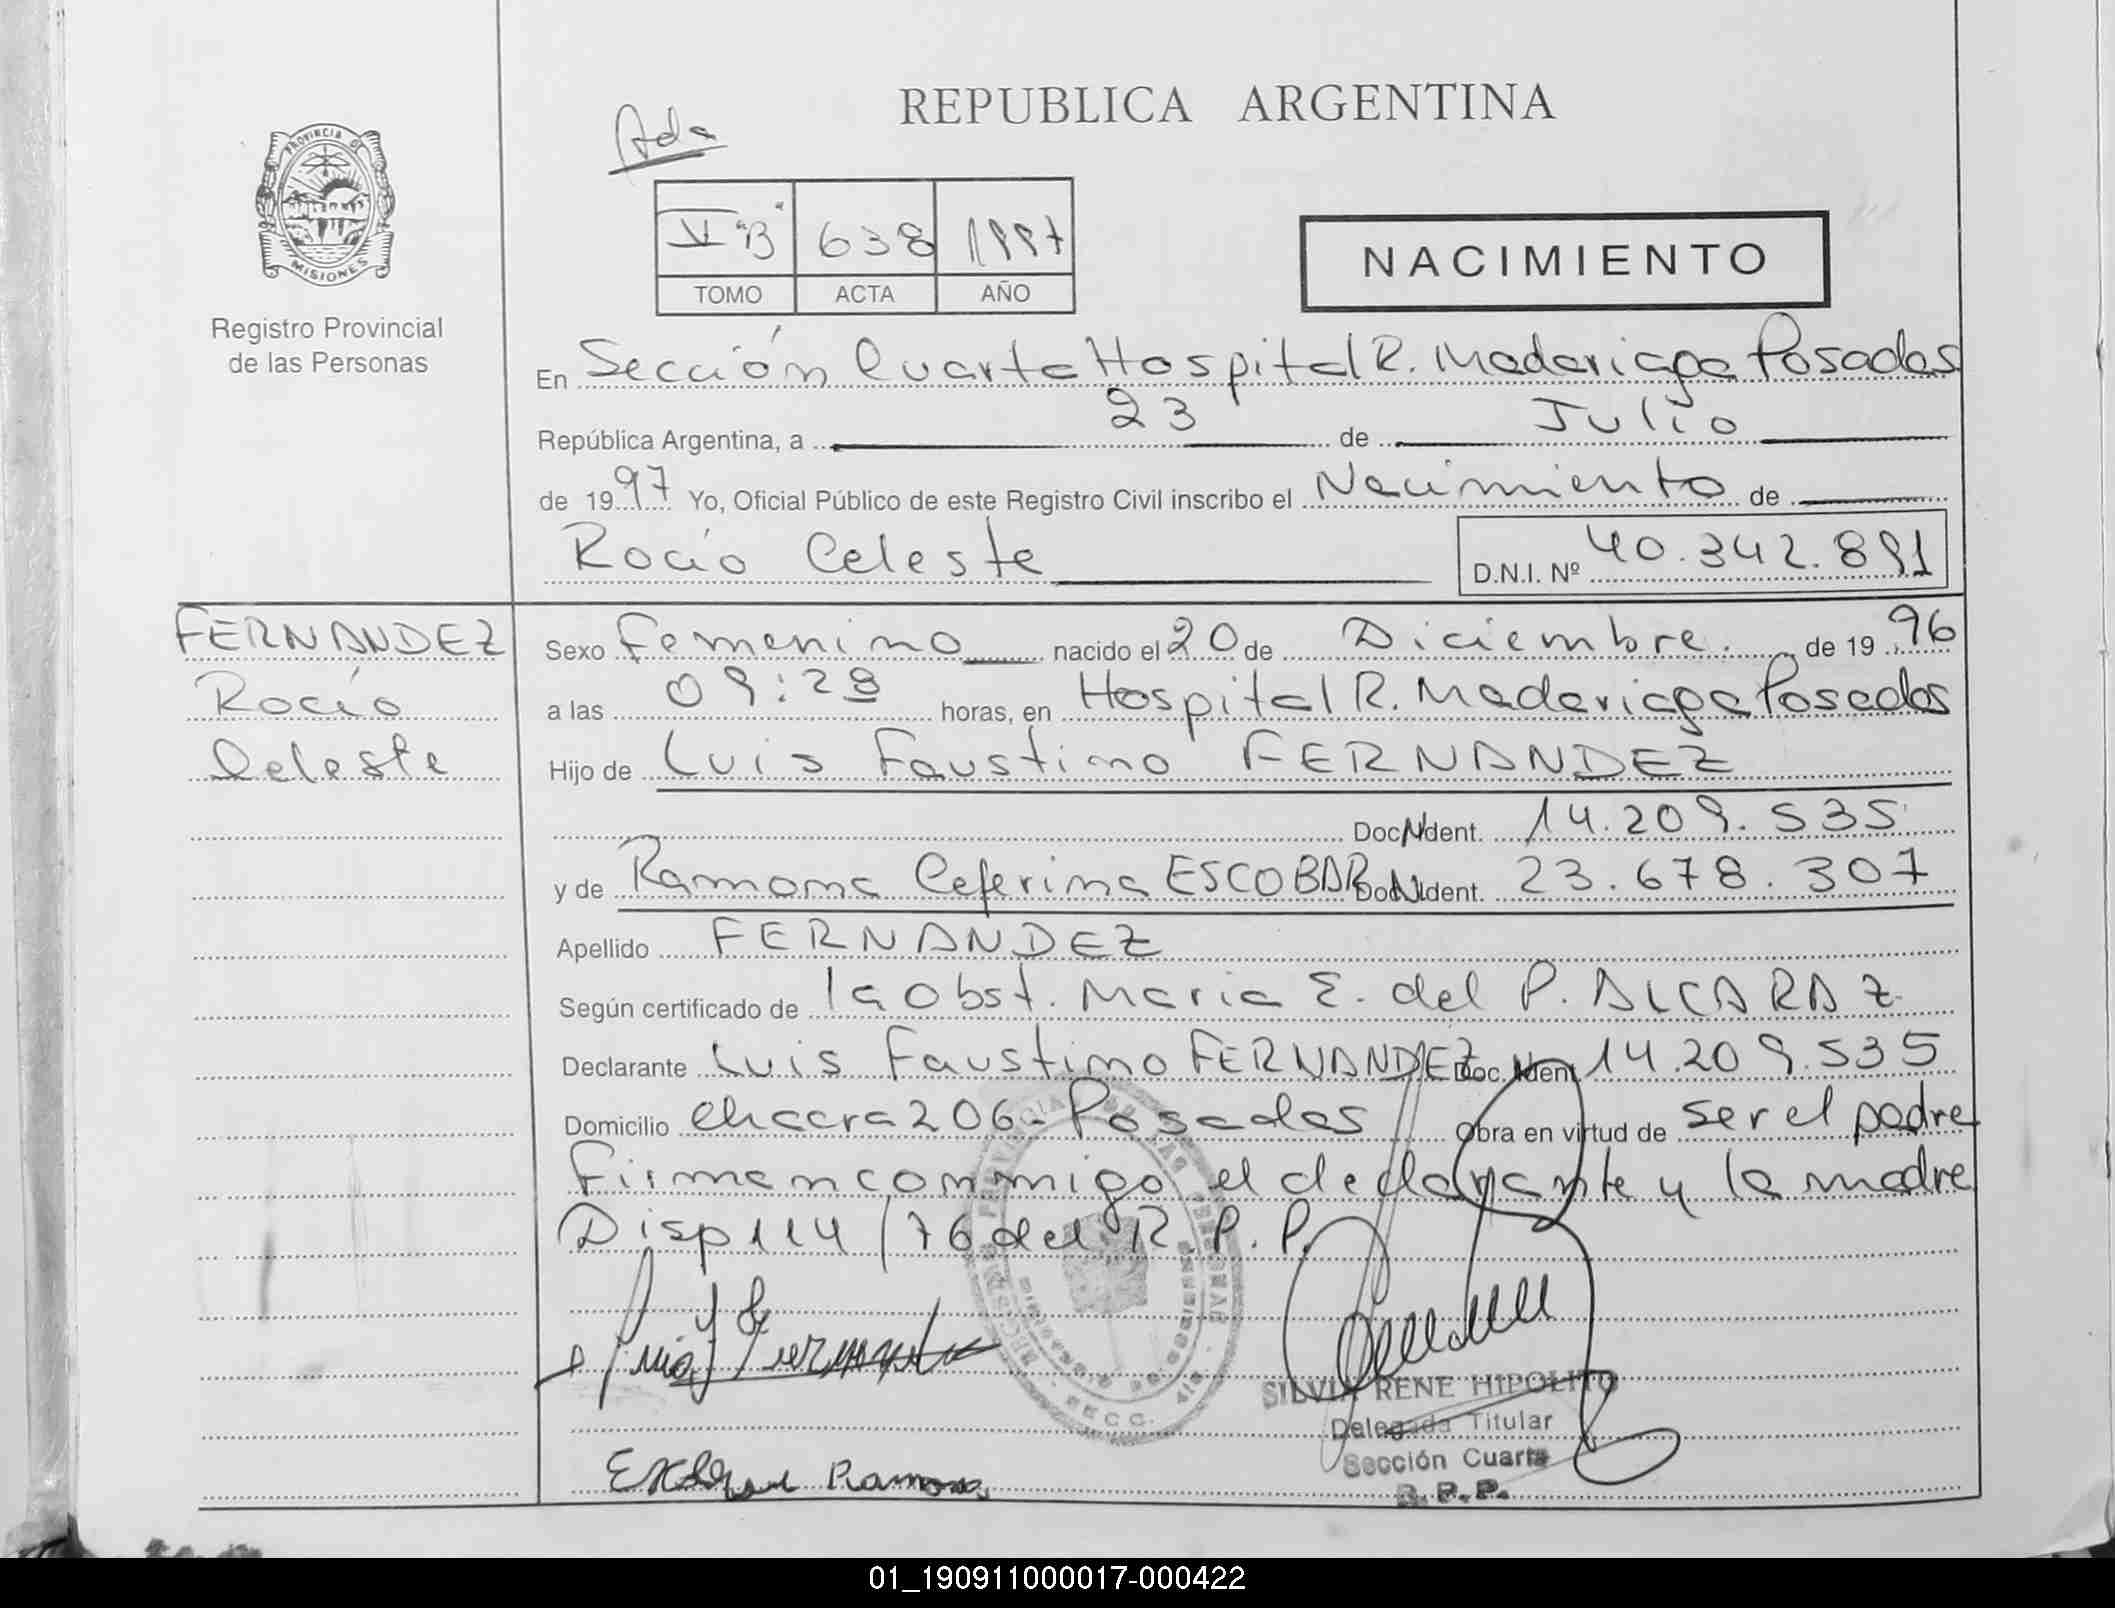 REPUBLICA ARGENTINA
PROVINCIA DE
MISIONES
Registro Provincial
de las Personas
V "B" 638 1997
TOMO ACTA AÑO
NACIMIENTO
En Sección Cuarta Hospital R. Madariaga Posadas
República Argentina, a 23 de Julio
de 1997 Yo, Oficial Público de este Registro Civil inscribo el Nacimiento de
Rocío Celeste D.N.I. Nº 40.342.891
FERNANDEZ
Rocío
Celeste
Sexo Femenino nacido el 20 de Diciembre. de 1996
a las 09:28 horas, en Hospital R. Madariaga Posadas
Hijo de Luis Faustino FERNANDEZ
Doc. Ident. 14.209.535
y de Ramona Ceferina ESCOBAR Doc. Ident. 23.678.307
Apellido FERNANDEZ
Según certificado de la Obst. Maria E. del P. ALCARAZ.
Declarante Luis Faustino FERNANDEZ Doc. Ident. 14.209.535
Domicilio Chacra 206 - Posadas Obra en virtud de ser el padre
Firman conmigo el declarante y la madre
Disp 114/76 del R.P.P.
SILVIA RENE HIPOLITO
Delegada Titular
Sección Cuarta
R. P. P.
Ramona
01_190911000017-000422